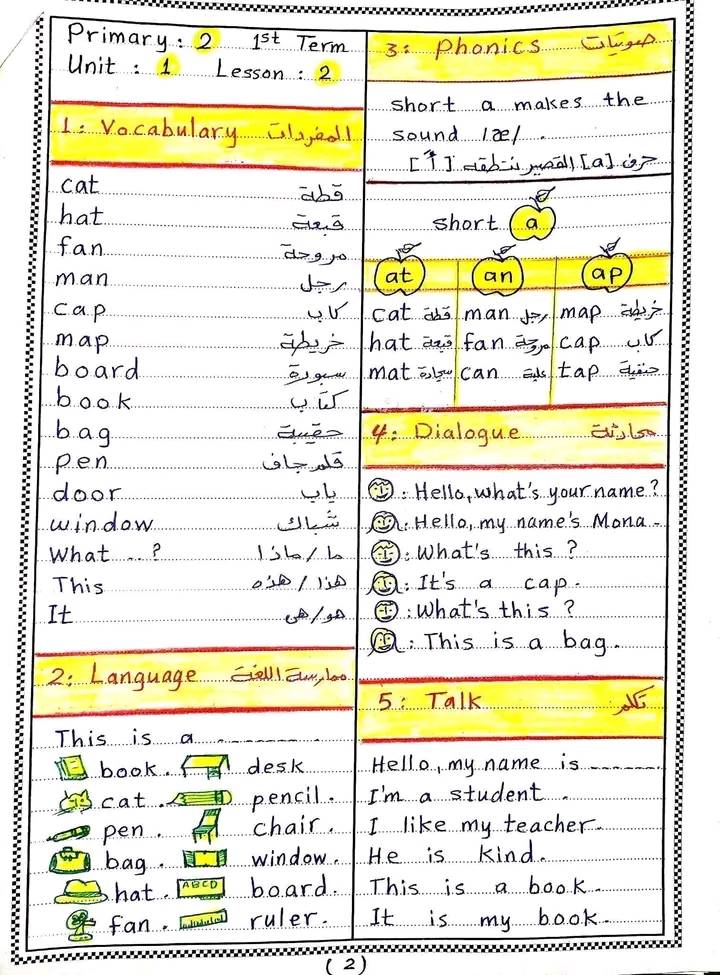 Primary : 2 1st Term
Unit : 1 Lesson : 2
1: Vocabulary المفردات
cat قطة
hat قبعة
fan مروحة
man رجل
cap كاب
map خريطة
board سبورة
book كتاب
bag حقيبة
pen قلم جاف
door باب
window شباك
What ..? ما / ماذا
This هذا / هذه
It هو/هى
2: Language ممارسة اللغة
This is a ..........
book. desk
cat. pencil.
pen. chair.
bag. window.
hat. ABCD board.
fan. ruler.
3: Phonics صوتيات
short a makes the
sound /æ/ .
حرف [a] القصير ننطقه [أَ]
short a
at an ap
cat قطة man رجل map خريطة
hat قبعة fan مروحة cap كاب
mat سجادة can علبة tap حنفية
4: Dialogue محادثة
: Hello, what's your name?
: Hello, my name's Mona.
: What's this ?
: It's a cap.
: What's this ?
: This is a bag.
5: Talk تكلم
Hello, my name is ------.
I'm a student .
I like my teacher.
He is kind.
This is a book.
It is my book.
( 2 )